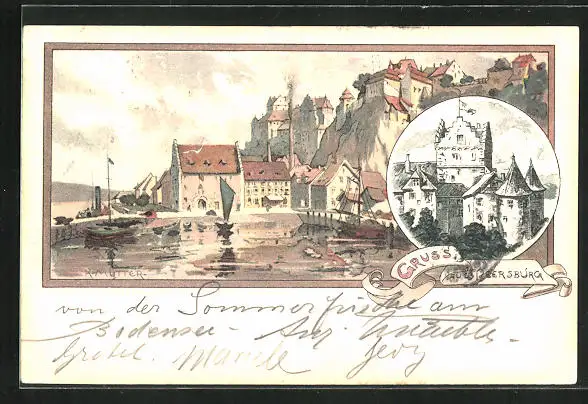 K. MUTTER.
GRUSS
AUS MEERSBURG
von der Sommerfrische am
Bodensee -
Gretel. Mamele